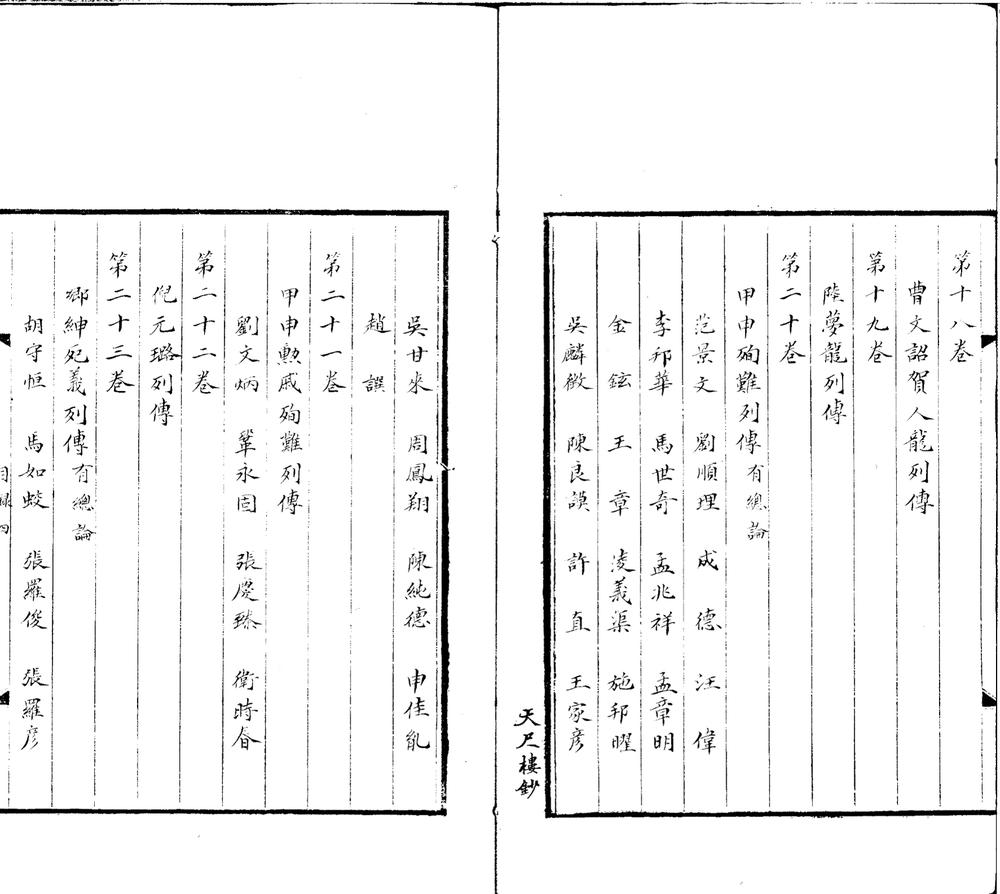 第十八卷
曹文詔賀人龍列傳
第十九卷
陸夢龍列傳
第二十卷
甲申殉難列傳有總論
范景文 劉順理 成德 汪偉
李邦華 馬世奇 孟兆祥 孟章明
金鉉 王章 淩義渠 施邦曜
吳麟徵 陳良謨 許直 王家彥
天尺樓鈔
吳甘來 周鳳翔 陳純德 申佳胤
趙譔
第二十一卷
甲申勲戚殉難列傳
劉文炳 鞏永固 張慶臻 衛時春
第二十二卷
倪元璐列傳
第二十三卷
鄉紳死義列傳有總論
胡守恒 馬如蛟 張羅俊 張羅彥
目錄四